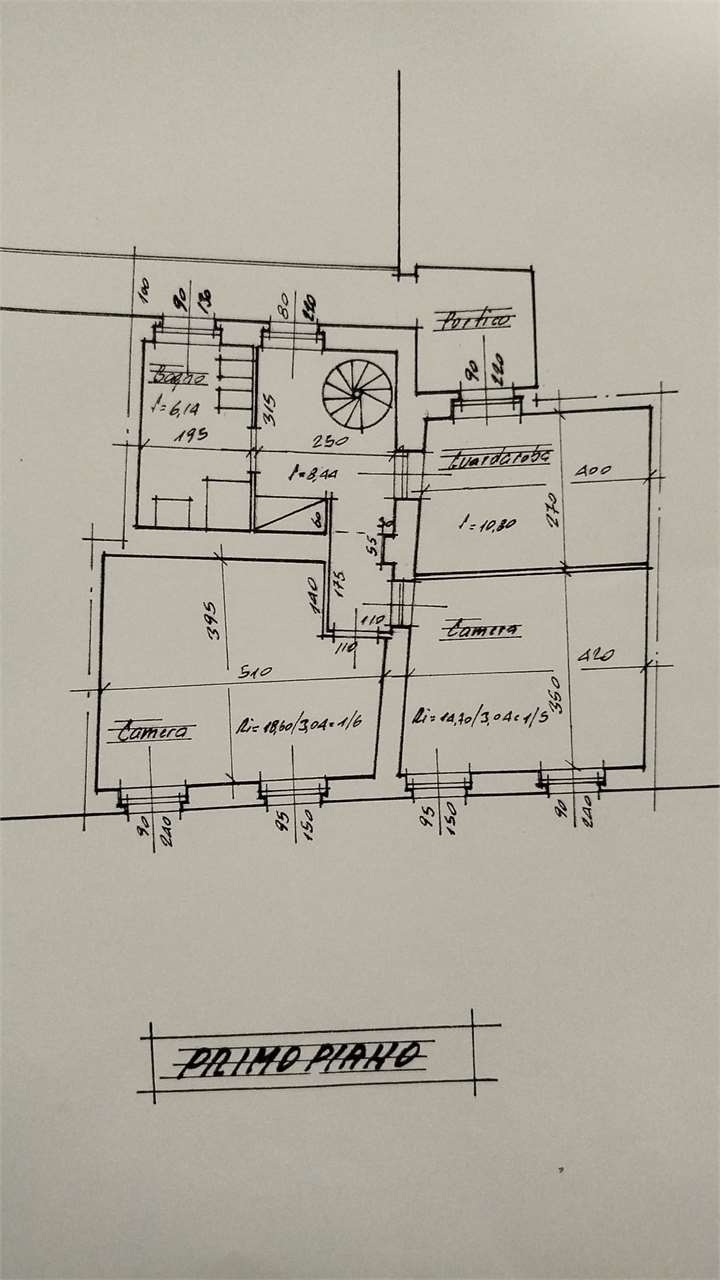 100
90
130
80
220
Portico
90
220
Bagno
f=6,14
195
315
250
f=8,44
Guardaroba
400
270
f=10,80
60
55
175
140
110
110
395
510
Camera
Ri=18,60/3,04=1/6
Camera
420
350
Ri=14,70/3,04=1/5
90
240
95
150
95
150
90
240
PRIMO PIANO